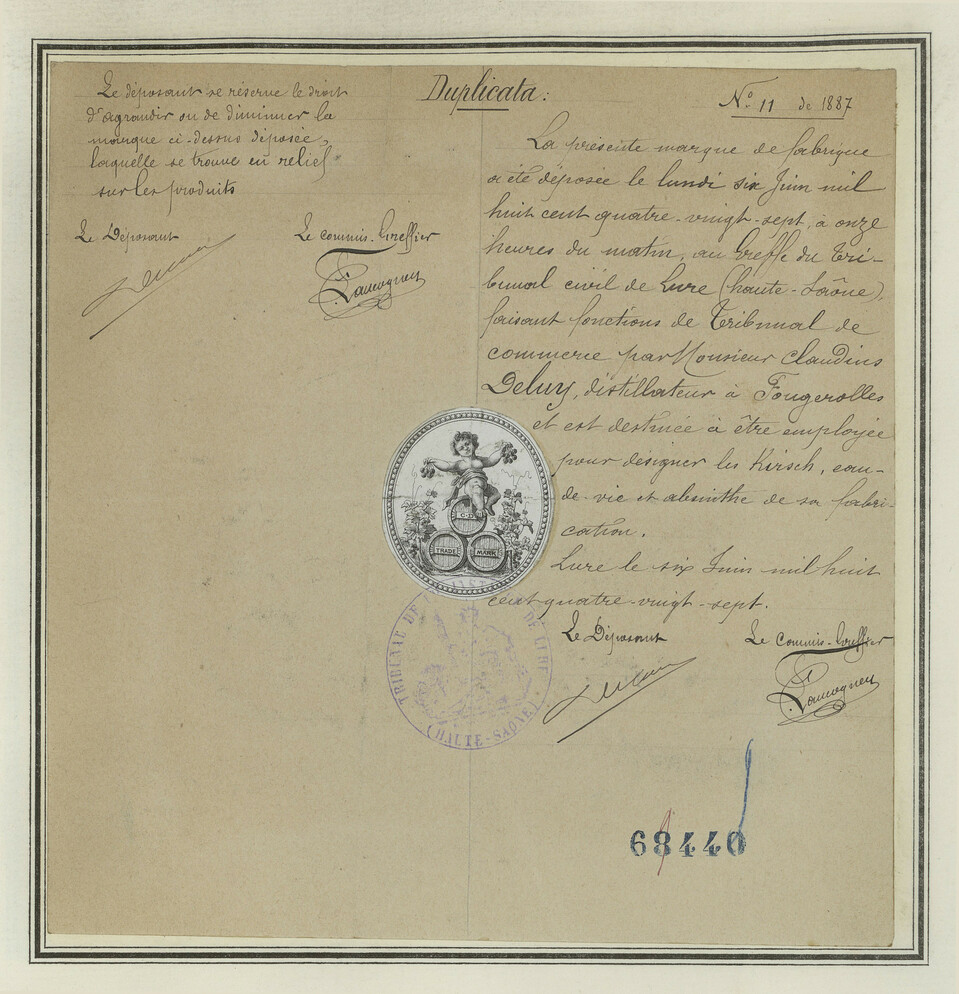 Duplicata :
N.º 11 de 1887
Le déposant se réserve le droit
d'agrandir ou de diminuer la
marque ci-dessus déposée,
laquelle se trouve en relief
sur les produits
Le Déposant
Le commis-Greffier
La présente marque de fabrique
a été déposée le lundi six Juin mil
huit cent quatre-vingt-sept, à onze
heures du matin, au Greffe du Tri-
bunal civil de Lure (haute-Saône),
faisant fonctions de Tribunal de
commerce par Monsieur Claudius
Deluy, distillateur à Fougerolles
et est destinée à être employée
pour désigner les Kirsch, eau-
de-vie et absinthe de sa fabri-
cation.
Lure le six Juin mil huit
cent quatre-vingt-sept.
Le Déposant
Le commis-Greffier
C.D.
TRADE MARK
TRIBUNAL DE DE LURE
(HALTE-SAÔNE)
68440